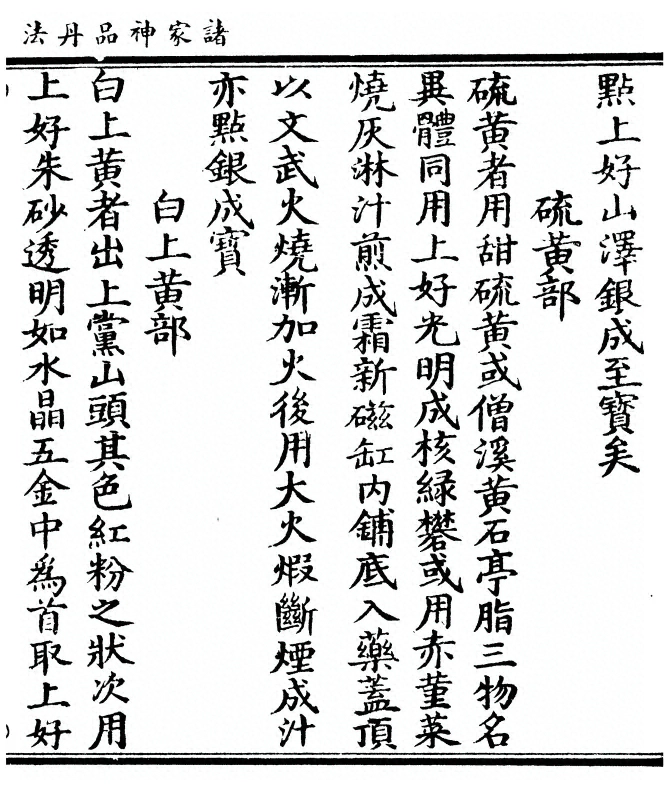 諸家神品丹法
點上好山澤銀成至寶矣
硫黃部
硫黃者用甜硫黃或僧溪黃石亭脂三物名
異體同用上好光明成核綠礬或用赤菫菜
燒灰淋汁煎成霜新磁缸内鋪底入藥蓋頂
以文武火燒漸加火後用大火煆斷煙成汁
亦點銀成寶
白上黃部
白上黃者出上黨山頭其色紅粉之狀次用
上好朱砂透明如水晶五金中為首取上好